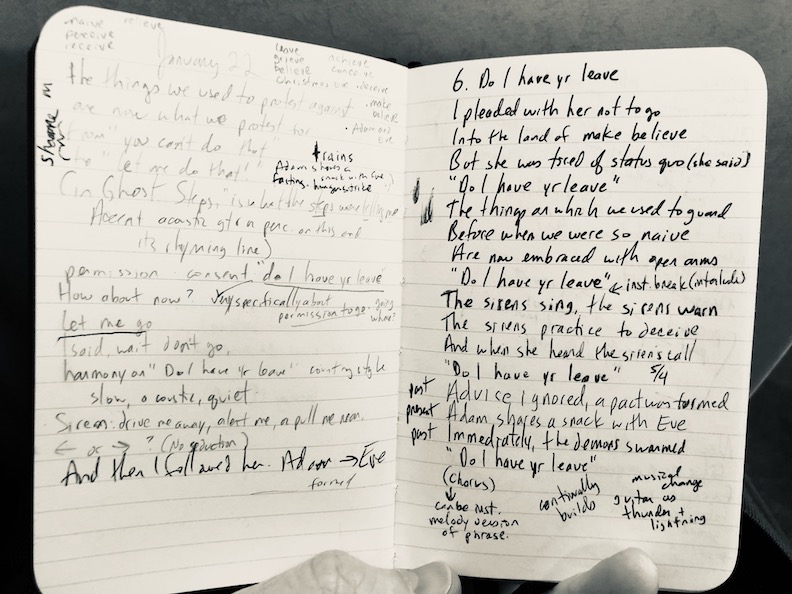 naive relieve
perceive
receive
January 22
leave achieve
grieve conceive
believe deceive
Christmas eve
make believe
Adam and Eve
the things we used to protest against
are now what we protest for
"you can't do that"
"let me do that!"
trains
Adam shares a snack with Eve
fasting. hunger strike
(in Ghost Steps, "is what the steps were telling me
Accent acoustic gtr n perc on this and
its rhyming line)
permission - consent "do I have yr leave"
How about now? Very specifically about
permission to go - going where?
Let me go
I said, wait don't go,
harmony on "Do I have yr leave" country style
slow, acoustic, quiet.
Siren: drive me away, alert me, or pull me near.
← or → ? (No seduction)
And then I followed her. Adam → Eve
formed
6. Do I have yr leave
I pleaded with her not to go
Into the land of make believe
But she was tired of status quo (she said)
"Do I have yr leave"
The things on which we used to guard
Before when we were so naive
Are now embraced with open arms
"Do I have yr leave" ← inst. break (interlude)
The sirens sing, the sirens warn
The sirens practice to deceive
And when she heard the sirens call
"Do I have yr leave" 5/4
past Advice ignored, a pact was formed
present Adam shares a snack with Eve
past Immediately, the demons swarmed
"Do I have yr leave"
(chorus)
↓
can be inst.
melody version
of phrase.
continually
builds
musical
change
guitar as
thunder +
lightning